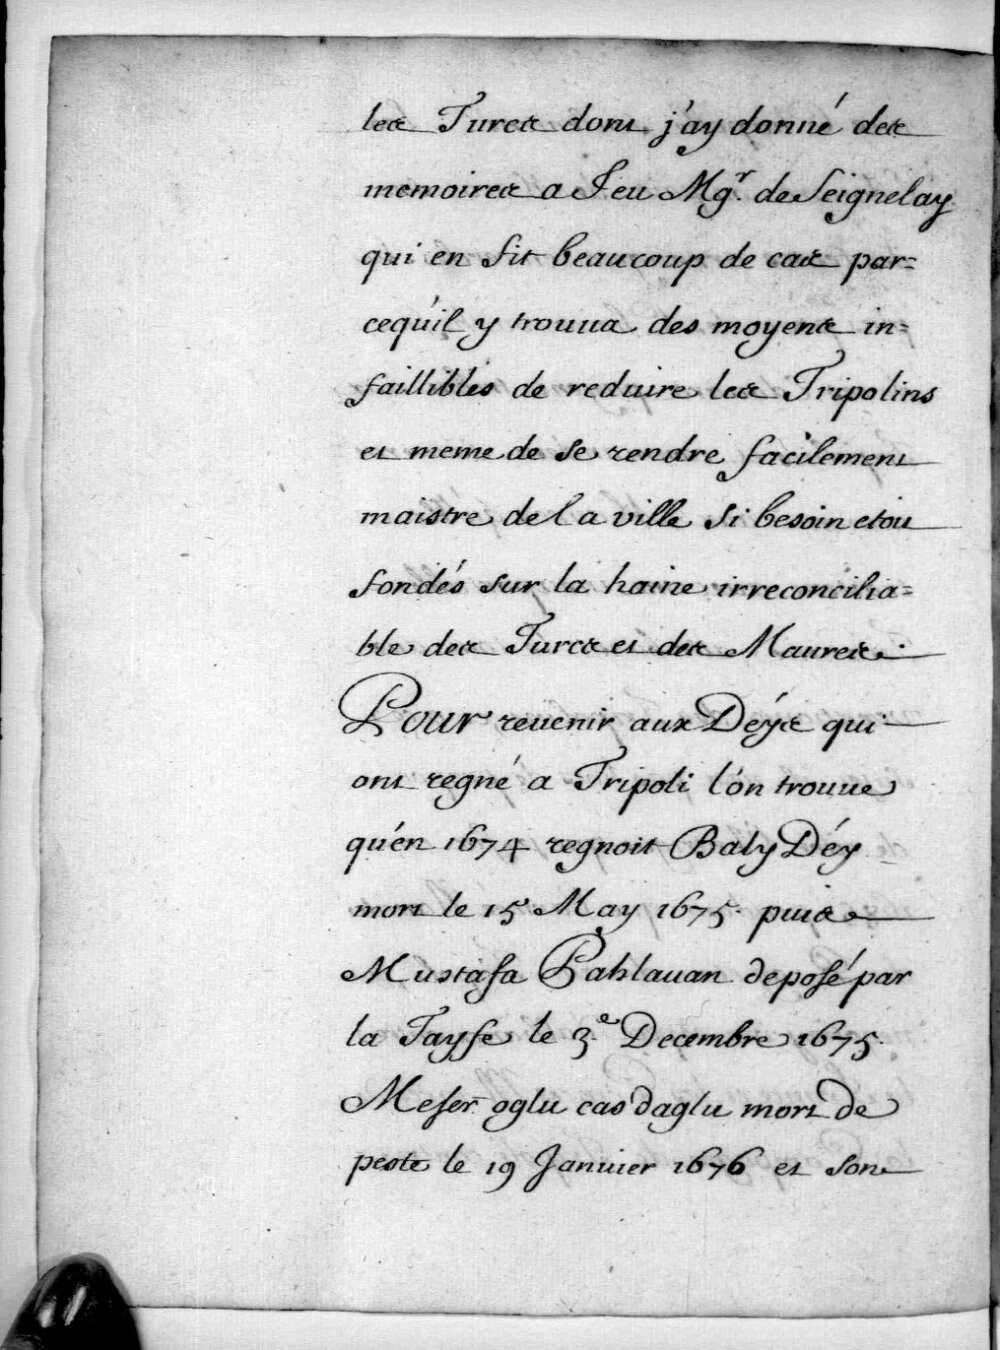 les Turcs dont j'ay donné des
memoires a feu Mgr. de Seignelay
qui en fit beaucoup de cas par=
cequ'il y trouua des moyens in=
faillibles de reduire les Tripolins
et meme de se rendre facilement
maistre de la ville si besoin etoit
fondés sur la haine irreconcilia=
ble des Turcs et des Maures.
Pour reuenir aux Déys qui
ont regné a Tripoli l'on trouue
qu'en 1674 regnoit Baly Déy
mort le 15 May 1675. puis
Mustafa Pahlauan deposé par
la Tayfe le 3.e Decembre 1675.
Meser oglu cas daglu mort de
peste le 19 Januier 1676 et son